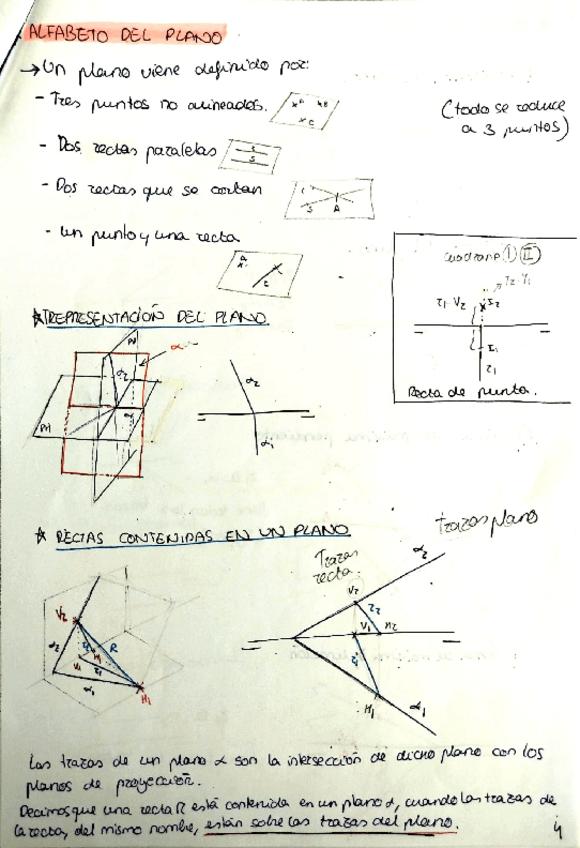 ALFABETO DEL PLANO
→ Un plano viene definido por:
- Tres puntos no alineados.
(todo se reduce
a 3 puntos)
- Dos rectas paralelas
- Dos rectas que se cortan
- un punto y una recta
cuadrante I II
Recta de punta.
* REPRESENTACIÓN DEL PLANO
PV
PH
α
α2
α1
* RECTAS CONTENIDAS EN UN PLANO
trazas plano
Trazas
recta.
V2
α2
R
V1
H1
α1
α2
V2
r2
V1 H2
r1
H1
α1
Las trazas de un plano α son la intersección de dicho plano con los
planos de proyección.
Decimos que una recta R está contenida en un plano α, cuando las trazas de
la recta, del mismo nombre, están sobre las trazas del plano.
4